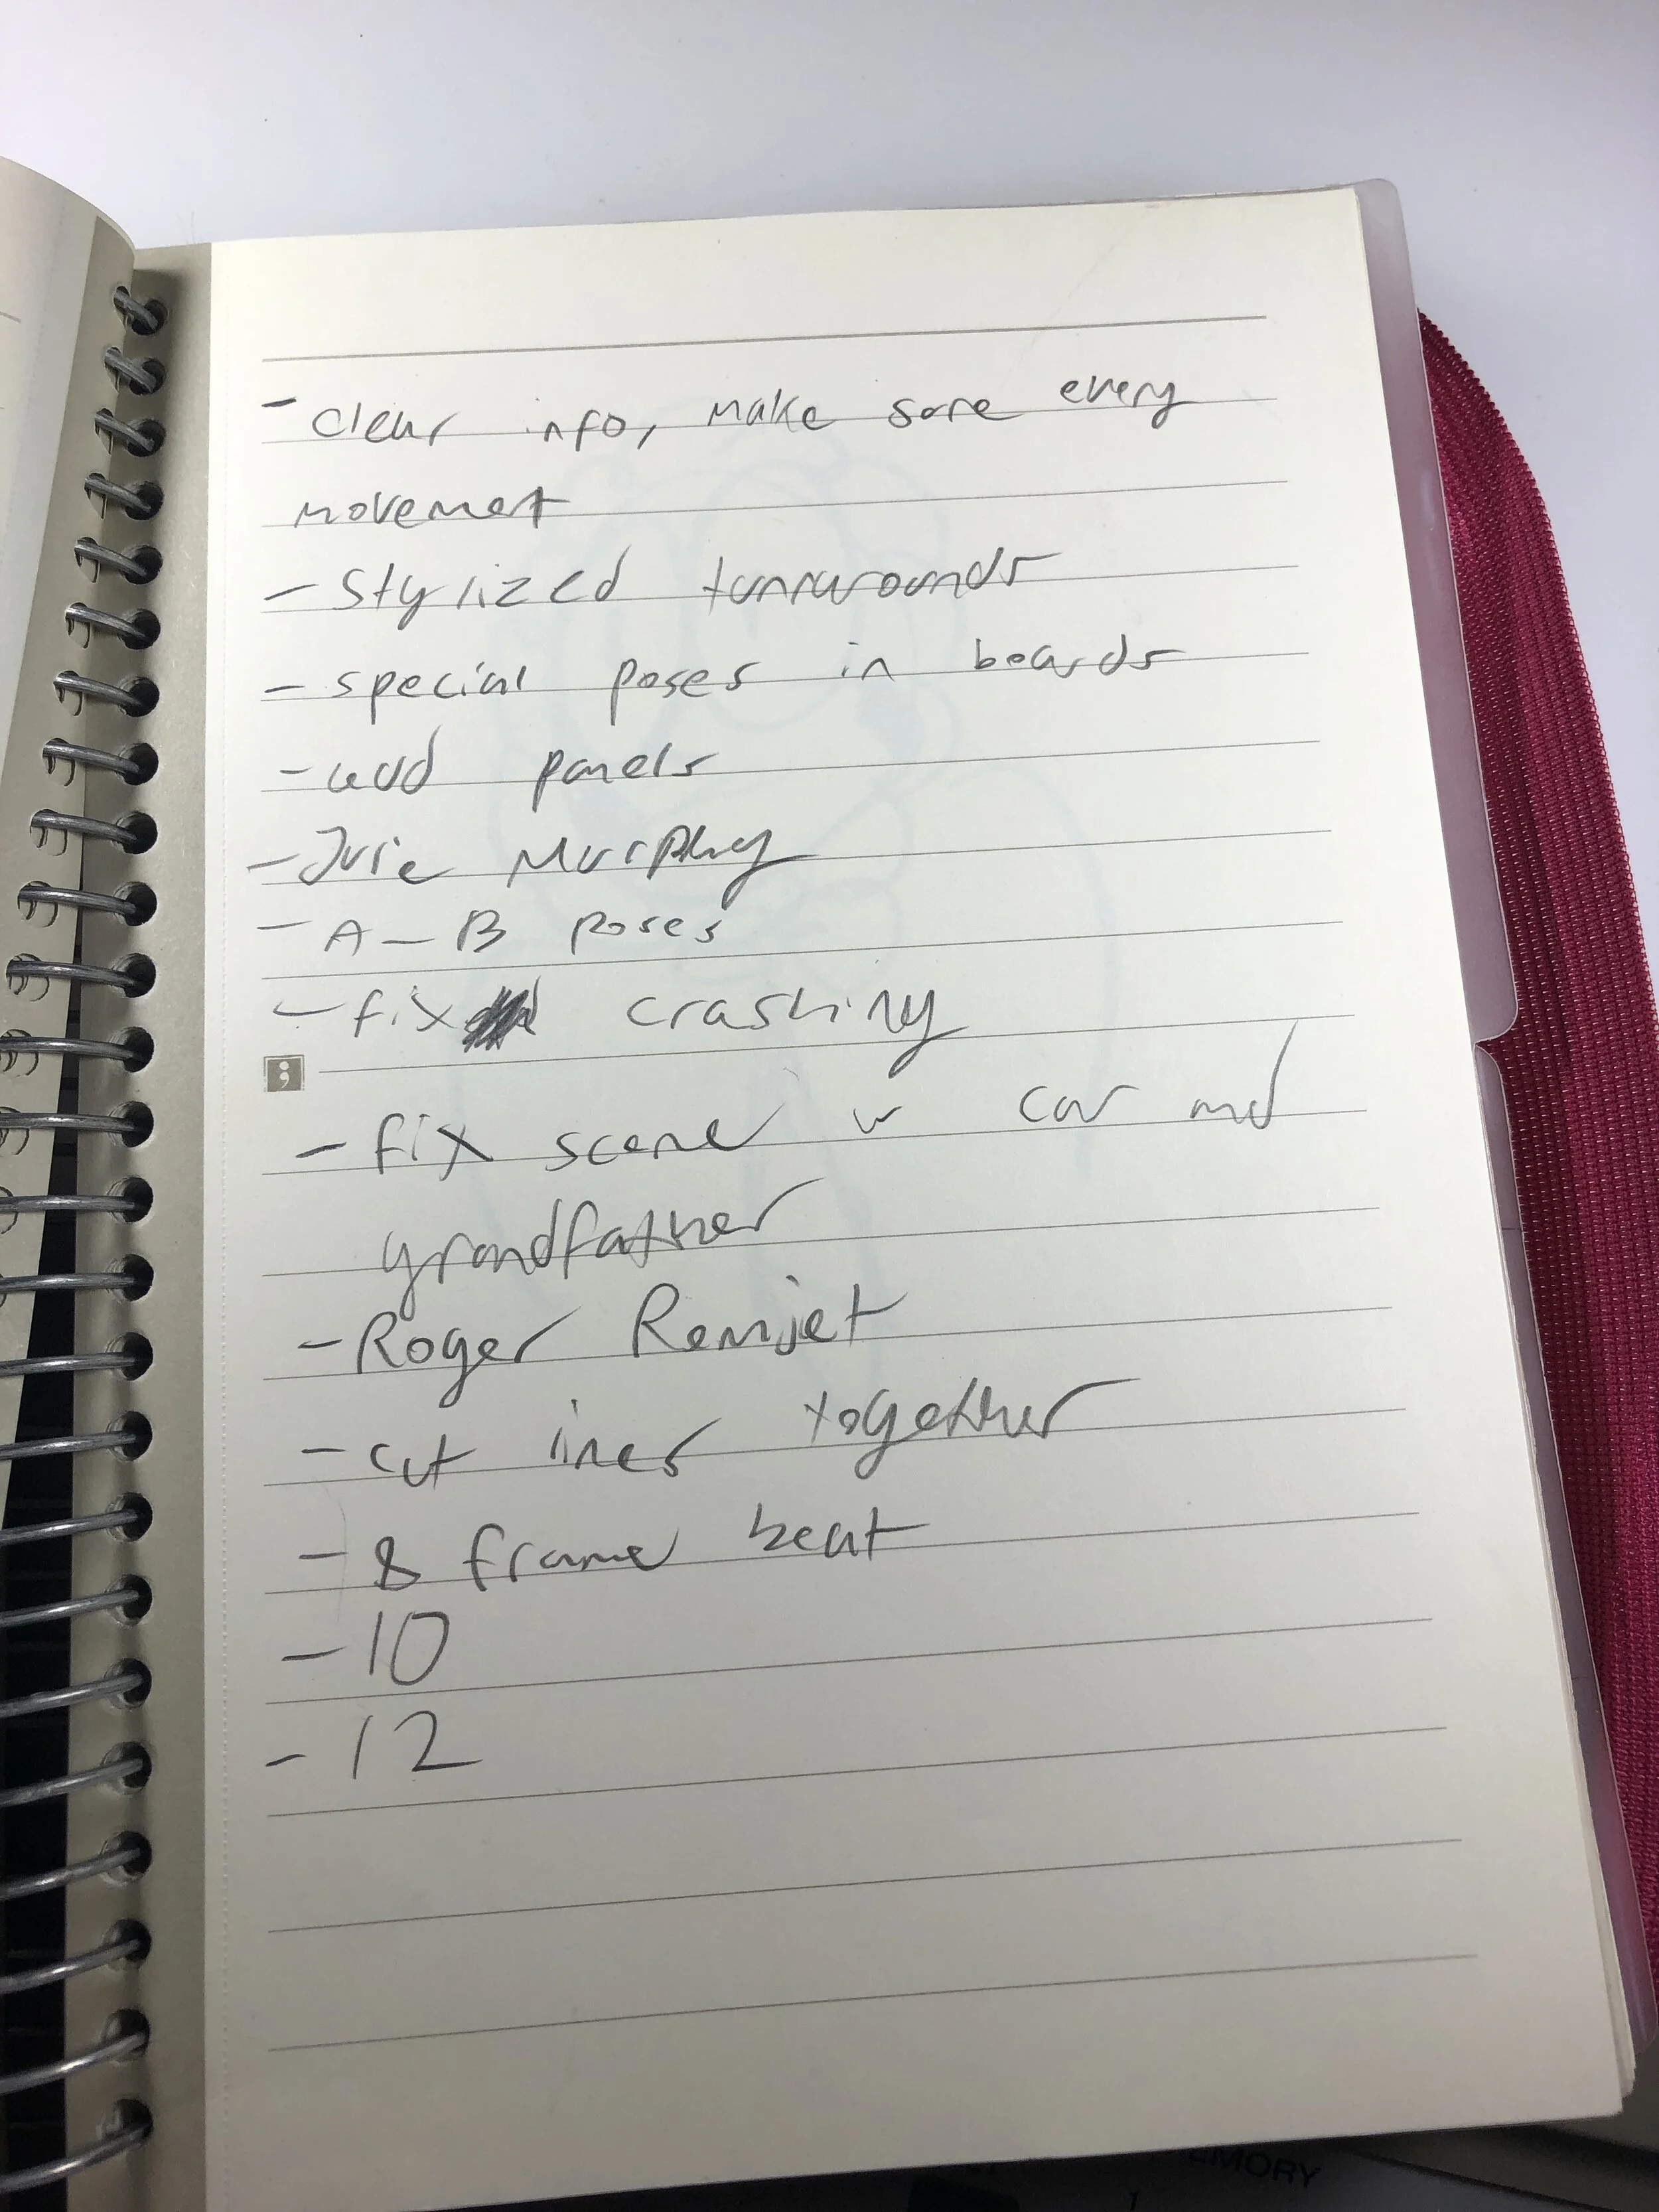 - clear info, make sure every
movement
- stylized turnarounds
- special poses in boards
- add panels
- Murphy
- A-B poses
- fix crashing
- fix scene w car and
grandfather
- Roger Ramjet
- cut lines together
- 8 frame beat
- 10
- 12
MEMORY
1